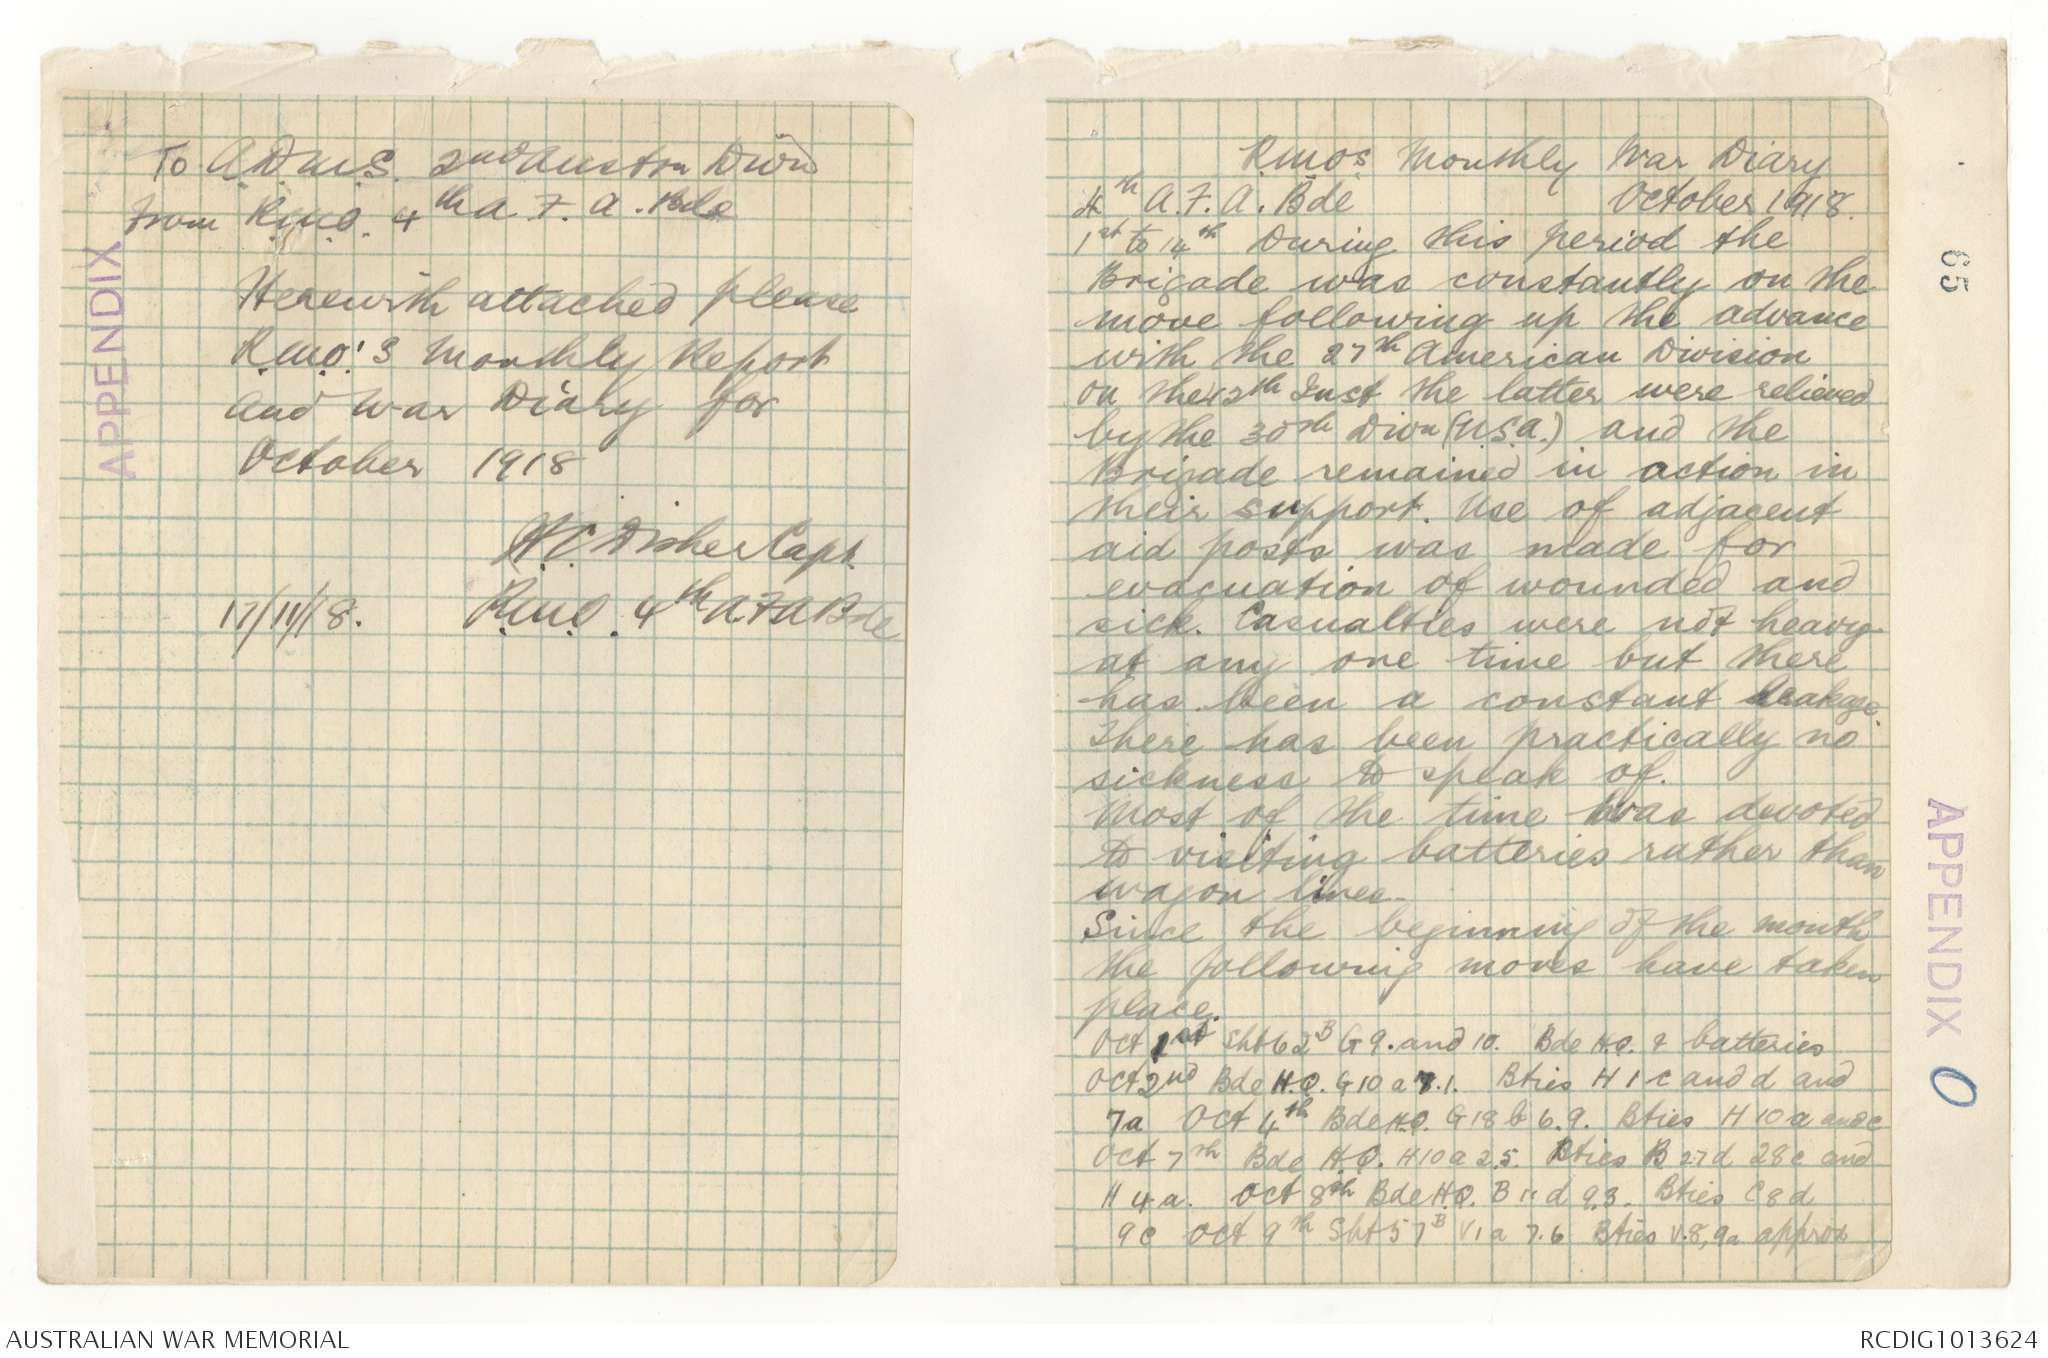 To A.D.M.S. 2nd Austrn Divn
From R.M.O. 4th A.F.A. Bde
Herewith attached please
R.M.O.'s Monthly Report
and War Diary for
October 1918
H C Disher Capt.
17/11/18. R.M.O. 4th A.F.A Bde
APPENDIX
R.M.O's Monthly War Diary
4th A.F.A. Bde October 1918.
1st to 14th During this period the
Brigade was constantly on the
move following up the advance
with the 27th American Division
On the 12th Inst the latter were relieved
by the 30th Divn (U.S.A.) and the
Brigade remained in action in
their support. Use of adjacent
aid posts was made for
evacuation of wounded and
sick. Casualties were not heavy
at any one time but there
has been a constant leakage.
There has been practically no
sickness to speak of.
Most of the time was devoted
to visiting batteries rather than
wagon lines.
Since the beginning of the month
the following moves have taken
place.
Oct 1st Sht 62B G 9. and 10. Bde H.Q. & batteries
Oct 2nd Bde H.Q. G 10 a 7.1. Bties H 1 c and d and
7a Oct 4th Bde H.Q. G 18 b 6.9. Bties H 10 a and c
Oct 7th Bde H.Q. H 10 a 2.5. Bties B 27 d 28 c and
H 4 a. Oct 8th Bde H.Q. B 11 d 9.3. Bties C 8 d
9 c Oct 9th Sht 57B V 1 a 7.6 Bties V.8, 9a approx
65
APPENDIX O
AUSTRALIAN WAR MEMORIAL
RCDIG1013624